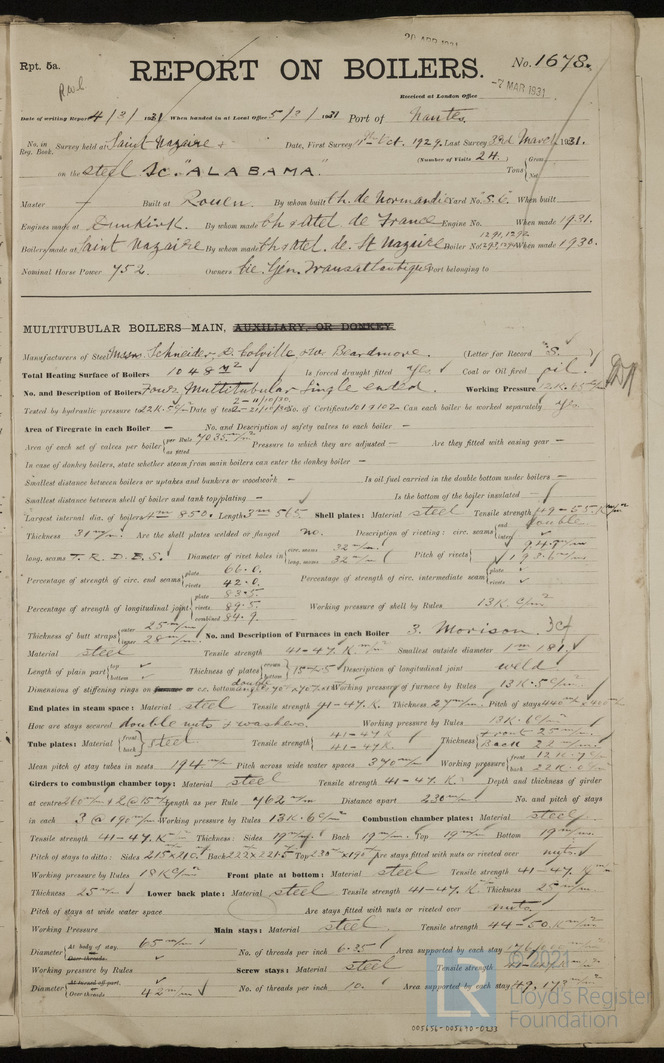 20 APR 1931
Rpt. 5a.
REPORT ON BOILERS.
No. 1678.
Received at London Office -7 MAR 1931
Date of writing Report 4/3/1931 When handed in at Local Office 5/3/1931 Port of Nantes
No. in Reg. Book. Survey held at Saint Nazaire + Date, First Survey Oct. 1929 Last Survey 3rd March 1931.
(Number of Visits 24.
on the steel Sc. "ALABAMA" Tons { Gross Net
Master — Built at Rouen. By whom built Ch. de Normandie Yard No. When built
Engines made at Dunkirk. By whom made Ch & Atel de France Engine No. When made 1931.
Boilers made at Saint Nazaire By whom made Ch & Atel. de St Nazaire Boiler No. 1291, 1292 When made 1930.
Nominal Horse Power 752. Owners Cie. Gén. Transatlantique Port belonging to
MULTITUBULAR BOILERS—MAIN, AUXILIARY, OR DONKEY
Manufacturers of Steel Messrs. Schneider, D. Colville, Beardmore. (Letter for Record S.)
Total Heating Surface of Boilers 1048 m² Is forced draught fitted yes Coal or Oil fired oil.
No. and Description of Boilers Four Multitubular Single ended. Working Pressure
Tested by hydraulic pressure to Date of test No. of Certificate Can each boiler be worked separately yes
Area of Firegrate in each Boiler — No. and Description of safety valves to each boiler —
Area of each set of valves per boiler { per Rule as fitted Pressure to which they are adjusted — Are they fitted with easing gear —
In case of donkey boilers, state whether steam from main boilers can enter the donkey boiler —
Smallest distance between boilers or uptakes and bunkers or woodwork — Is oil fuel carried in the double bottom under boilers —
Smallest distance between shell of boiler and tank top plating — Is the bottom of the boiler insulated —
Largest internal dia. of boilers 4m 850. Length 3m 565 Shell plates: Material steel Tensile strength 49-55.K m/m²
Thickness 31 m/m. Are the shell plates welded or flanged no. Description of riveting: circ. seams { end double inter
long. seams T. R. D. B. S. Diameter of rivet holes in { circ. seams 32 m/m. long. seams 32 m/m Pitch of rivets {
Percentage of strength of circ. end seams { plate 66.0. rivets 42.0. Percentage of strength of circ. intermediate seam { plate rivets
Percentage of strength of longitudinal joint { plate 83.5. rivets 89.5. combined 84.9. Working pressure of shell by Rules 13 K. c/m²
Thickness of butt straps { outer 25 m/m inner 28 m/m. No. and Description of Furnaces in each Boiler 3. Morison.
Material steel Tensile strength 41-47.K m/m² Smallest outside diameter 1m 181
Length of plain part { top bottom Thickness of plates { crown bottom Description of longitudinal joint weld
Dimensions of stiffening rings on furnace or c.c. bottom double Working pressure of furnace by Rules 13K.5 c/m²
End plates in steam space: Material steel Tensile strength 41-47.K. Thickness 27 m/m. Pitch of stays
How are stays secured double nuts + washers. Working pressure by Rules 13K.6 c/m²
Tube plates: Material { front back } steel Tensile strength { 41-47K 41-47K. Thickness { Front 25 m/m. Back 22 m/m.
Mean pitch of stay tubes in nests 194 m/m Pitch across wide water spaces 370 m/m Working pressure { front back
Girders to combustion chamber tops: Material steel Tensile strength 41-47.K. Depth and thickness of girder
at centre Length as per Rule 762 m/m Distance apart 230 m/m. No. and pitch of stays
in each 3 @ 190 m/m Working pressure by Rules 13K.6 c/m² Combustion chamber plates: Material steel
Tensile strength 41-47.K m/m² Thickness: Sides 19 m/m. Back 19 m/m. Top 19 m/m Bottom 19 m/m.
Pitch of stays to ditto: Sides 215 x 210 Back Top Are stays fitted with nuts or riveted over nuts.
Working pressure by Rules 13K c/m² Front plate at bottom: Material steel Tensile strength 41-47.K m/m²
Thickness 25 m/m Lower back plate: Material steel Tensile strength 41-47.K m/m² Thickness 25 m/m.
Pitch of stays at wide water space Are stays fitted with nuts or riveted over nuts.
Working Pressure Main stays: Material steel Tensile strength 44-50.K m/m²
Diameter { At body of stay, 65 m/m Over threads No. of threads per inch 6.35 Area supported by each stay
Working pressure by Rules Screw stays: Material steel Tensile strength
Diameter { At turned off part, Over threads 42 m/m No. of threads per inch 10. Area supported by each stay
© 2021
LR
Lloyd's Register
Foundation
005656-005670-0253